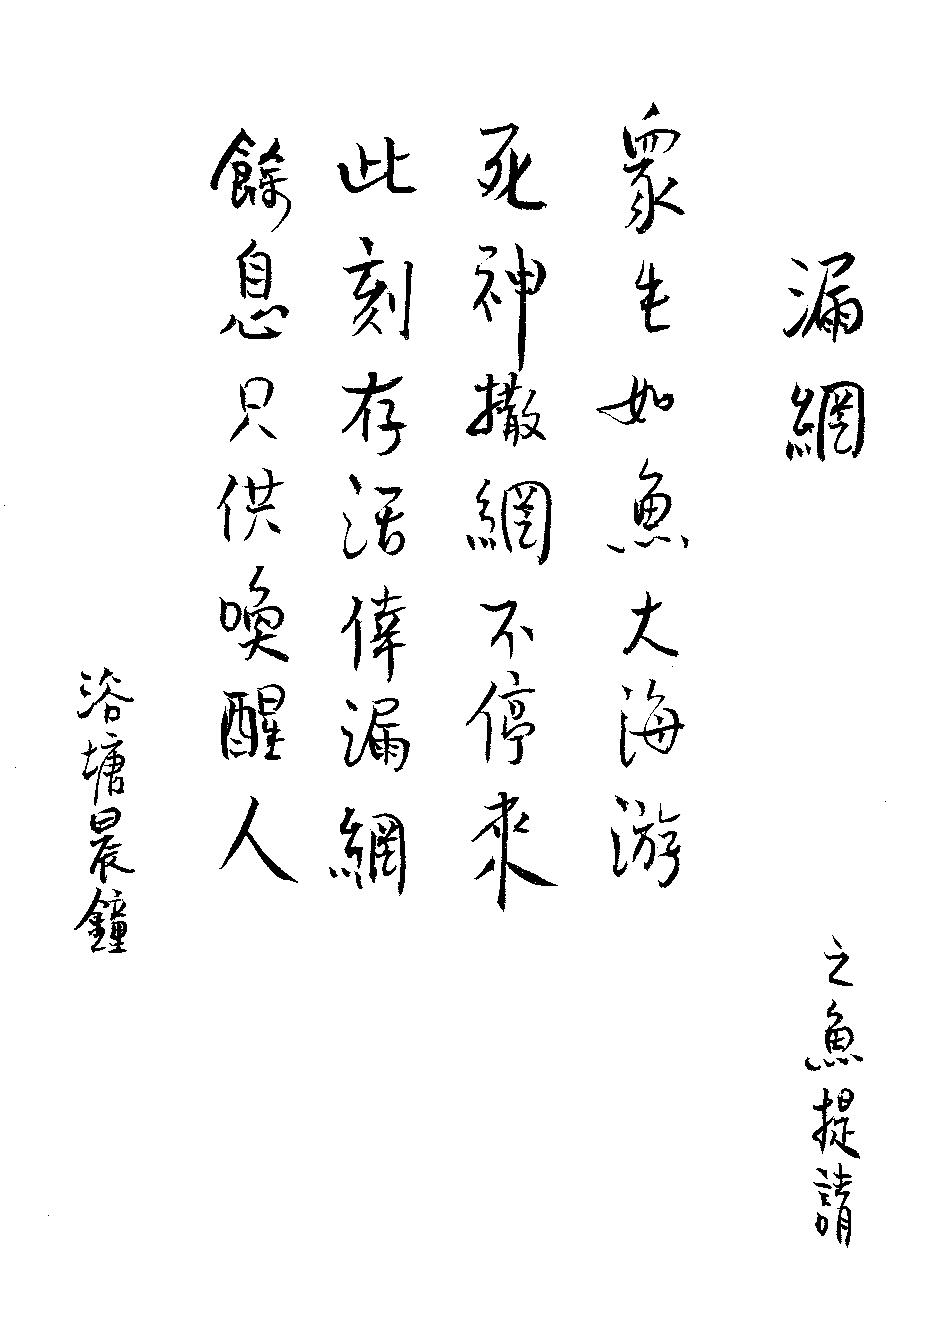 漏網
之魚提請
衆生如魚大海游
死神撒網不停來
此刻存活倖漏網
餘息只供喚醒人
浴塘晨鐘